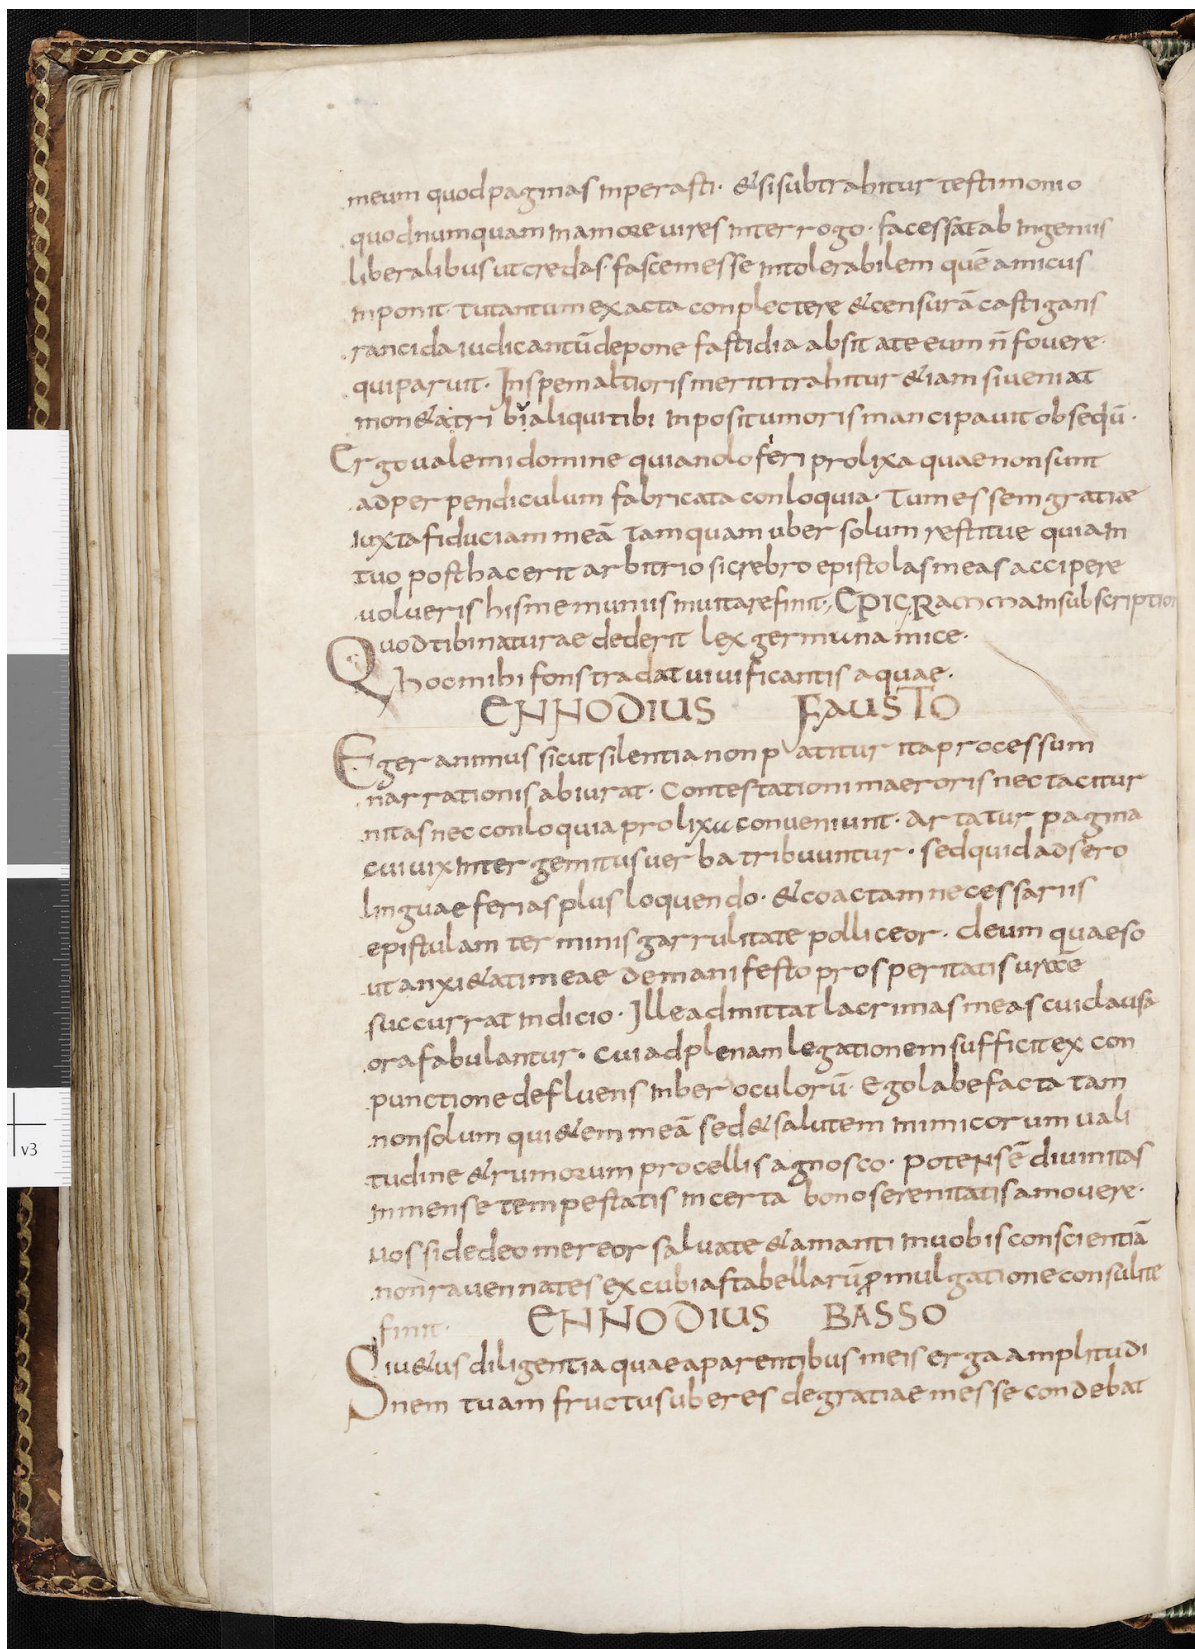 meum quod paginas inperasti· & si subtrahitur testimonio
quod numquam in amore vires interrogo· facessat ab ingeniis
liberalibus ut credas· fascem esse intolerabilem quē amicus
inponit· tu tantum exacta conplectere & censurā castigans
rancida iudicantū depone fastidia absit a te eum n̄ fovere·
qui paruit· In spem altioris meriti trahitur & iam si veniat
mon&a tribialiqui tibi inpositum oris mancipavit obsequū·
Ergo vale mi domine quia nolo feri prolixa quae non sunt
ad perpendiculum fabricata conloquia· Tu messem gratiae
iuxta fiduciam meā tamquam uber solum restitue quia in
tuo posthac erit arbitrio si crebro epistolas meas accipere
volueris his me muniis invitare finit·, EPIGRAmma in subscription
Quod tibi naturae dederit lex germuna mice·
hoc mihi fons tradat vivificantis aquae·
ENNODIUS FAUSTO
Eger animus sicut silentia non patitur ita processum
narrationis abiurat· Contestationi maeroris nec tacitur
nitas nec conloquia prolixa conveniunt· Artatur pagina
cui vix inter gemitus verba tribuuntur· sed quid adsero
linguae ferias plus loquendo· & coactam necessariis
epistulam terminis garrulitate polliceor· deum quaeso
ut anxi&ati meae de manifesto prosperitatis urae
succurrat indicio· Ille admittat lacrimas meas cui clausa
ora fabulantur· cui ad plenam legationem sufficit ex con
punctione defluens inber oculorū· Ego labefactatam
non solum qui&em meā sed & salutem inimicorum vali
tudine & rumorum procellis agnosco· potens ē divinitas
inmense tempestatis incerta bono serenitatis amovere·
vos si de deo mereor salvate & amanti in vobis conscientiā
non ravennates excubias tabellarū promulgatione consulite
finit· ENNODIUS BASSO
Si v&us diligentia quae a parentibus meis erga amplitudi
nem tuam fructus uberes de gratiae messe condebat